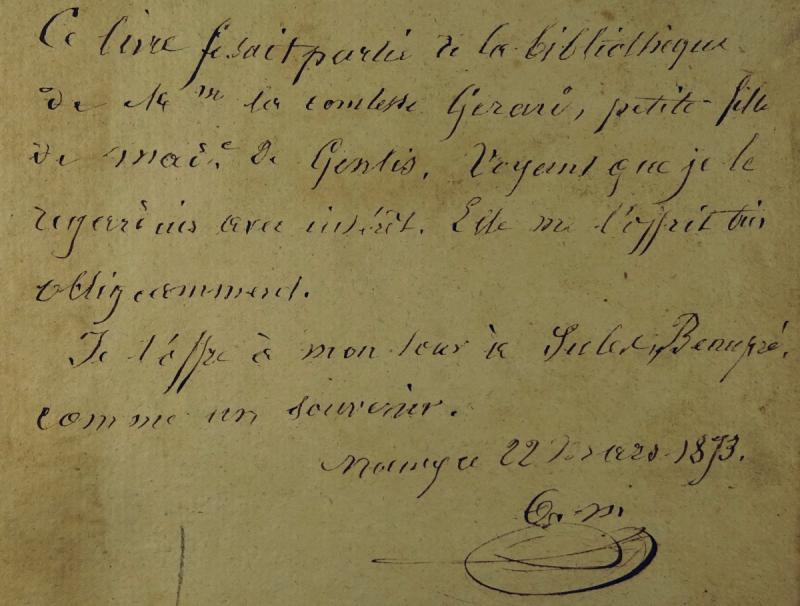 Ce livre fesait partie de la bibliothèque
de Mme la comtesse Gérard, petite-fille
de made. de Genlis. Voyant que je le
regardais avec intérêt. Elle me l'offrit très
obligeamment.
Je l'offre à mon tour à Jules Beaupré,
comme un souvenir.
Nancy ce 22 mars 1873.